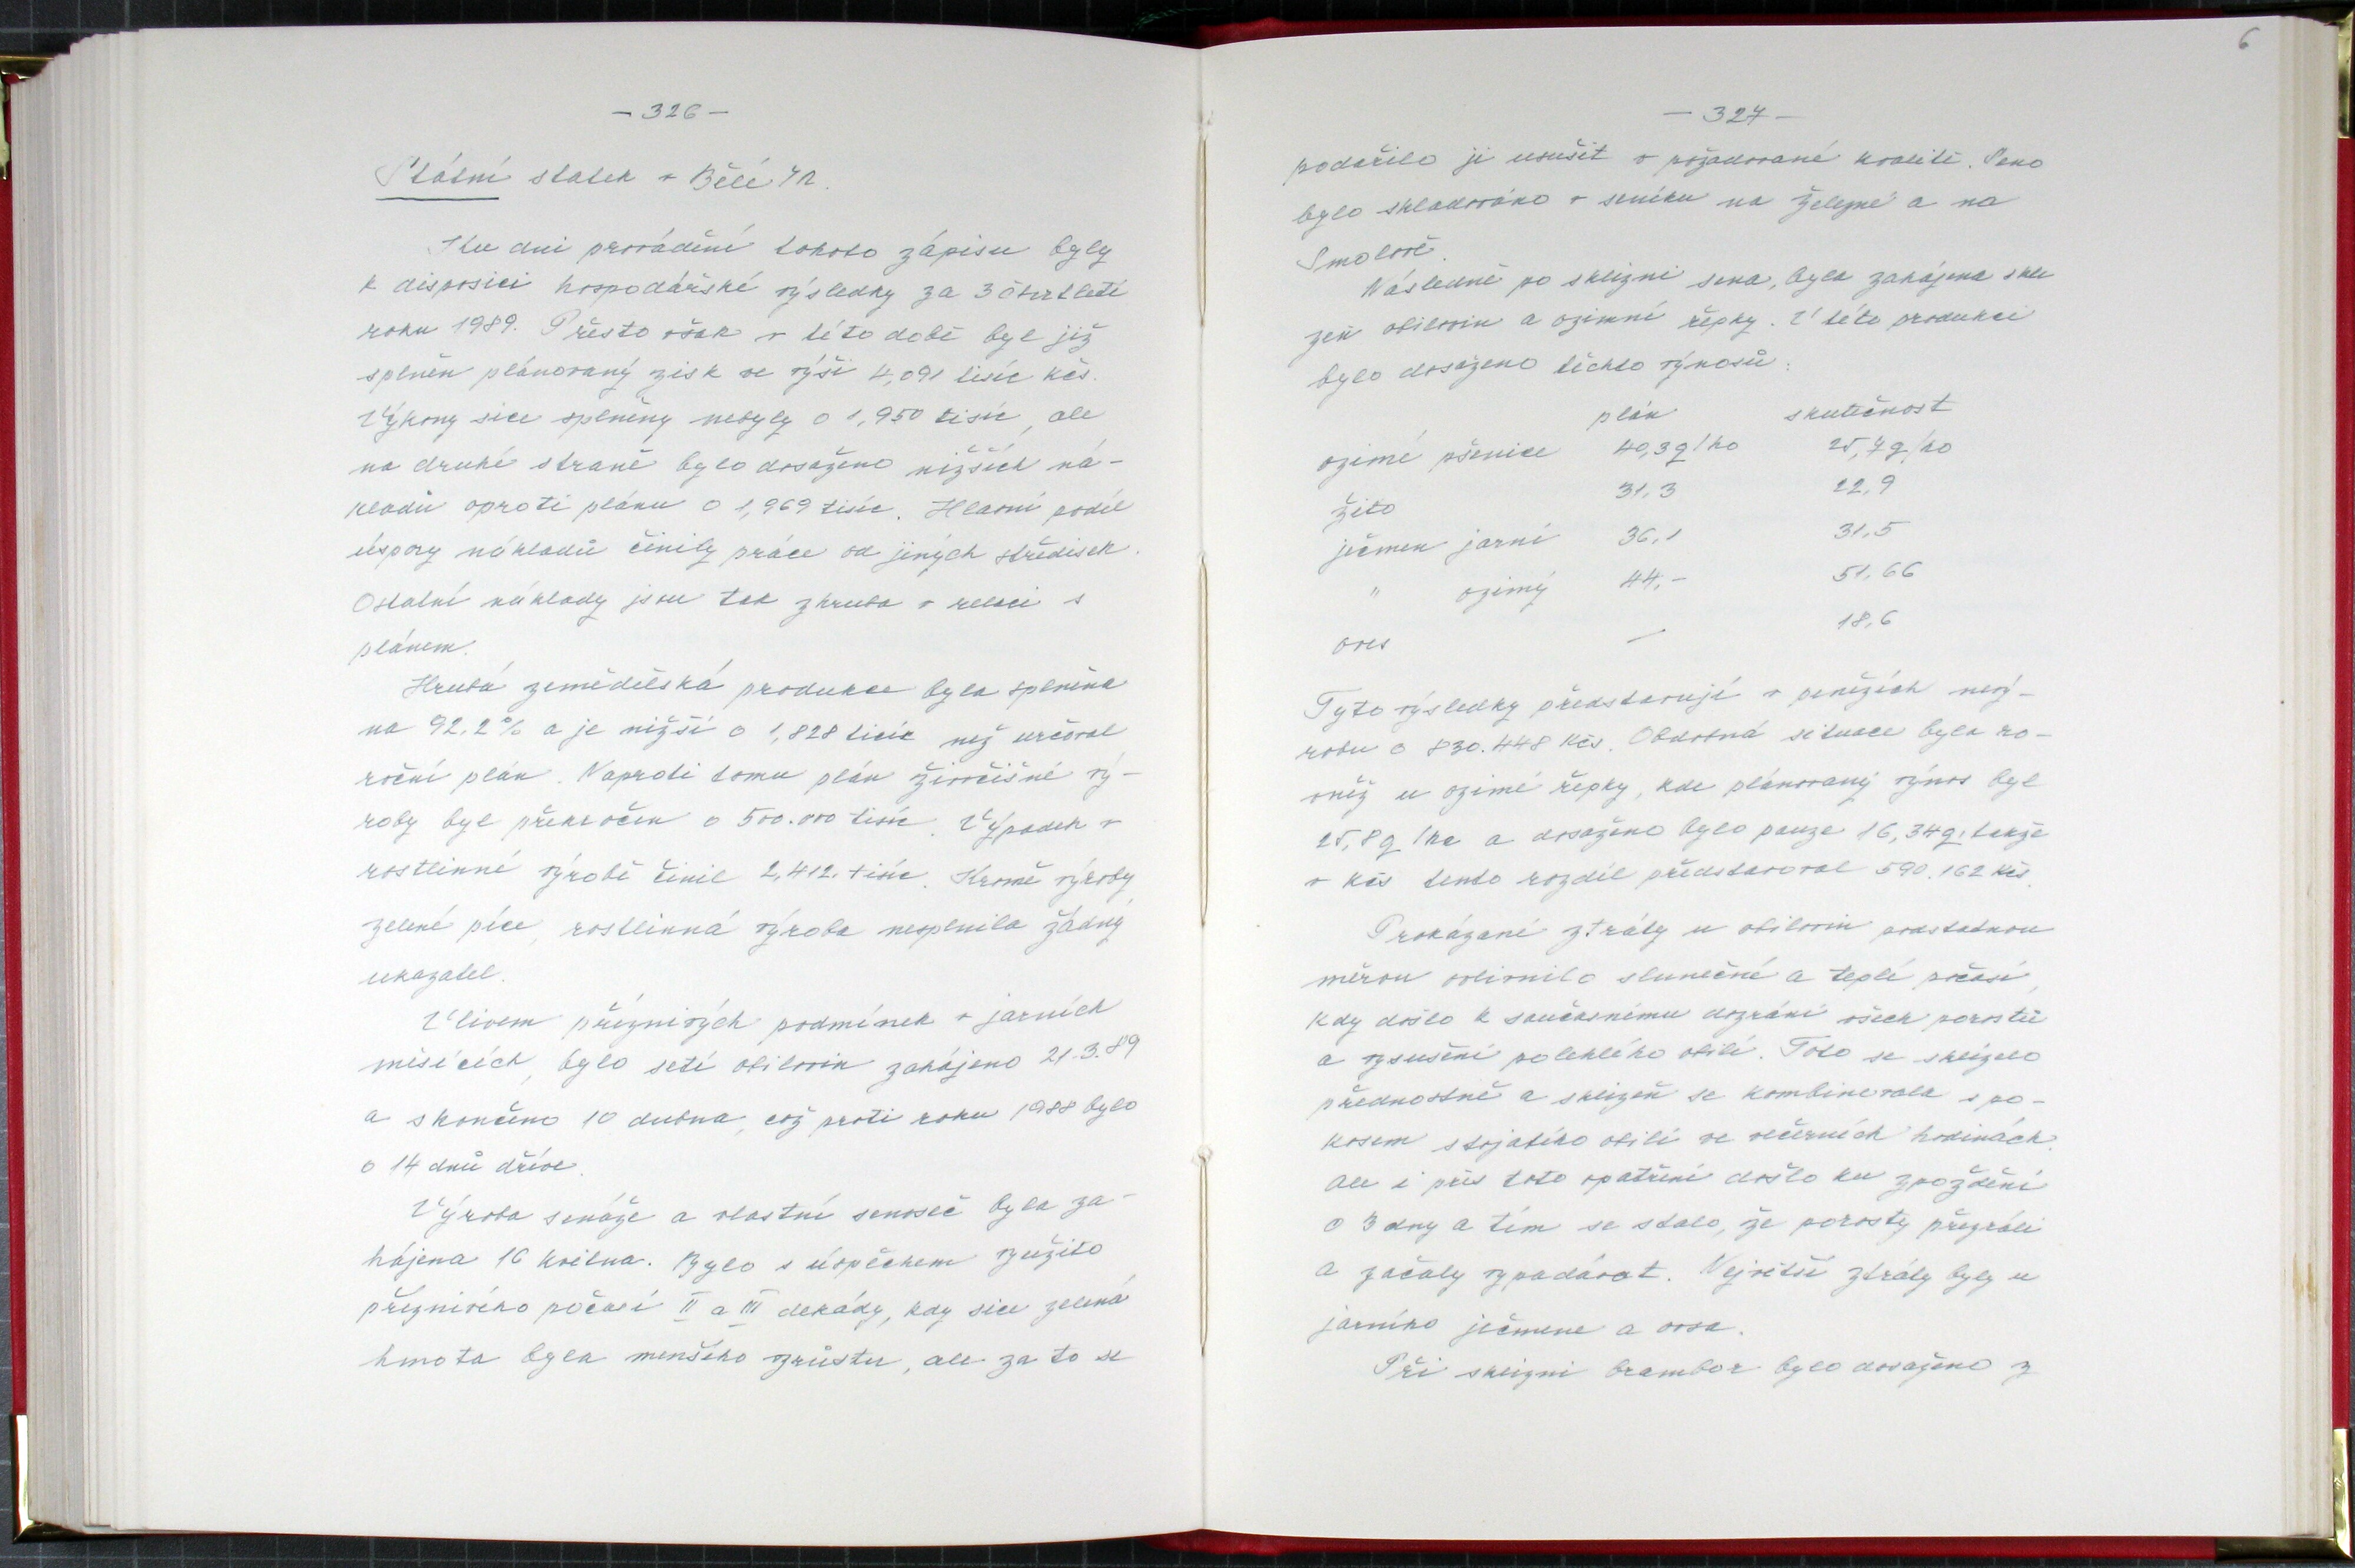 - 326 -
Státní statek v Bělé n/R.
Ku dni provádění tohoto zápisu byly
k disposici hospodářské výsledky za 3 čtvrtletí
roku 1989. Přesto však v této době byl již
splněn plánovaný zisk ve výši 4,091 tisíc kčs.
Výkony sice splněny nebyly o 1,950 tisíc, ale
na druhé straně bylo dosaženo nižších ná-
kladů oproti plánu o 1,969 tisíc. Hlavní podíl
úspory nákladů činily práce od jiných středisek.
Ostatní náklady jsou tak zhruba v relaci s
plánem.
Hrubá zemědělská produkce byla splněna
na 92,2% a je nižší o 1,828 tisíc než určoval
roční plán. Naproti tomu plán živočišné vý-
roby byl překročen o 500.000 tisíc. Výpadek v
rostlinné výrobě činil 2,412. tisíc. Kromě výroby
zelené píce, rostlinná výroba nesplnila žádný
ukazatel.
Vlivem příznivých podmínek v jarních
měsících, bylo setí obilovin zahájeno 21.3.89
a skončeno 10 dubna, což proti roku 1988 bylo
o 14 dnů dříve.
Výroba senáže a vlastní senoseč byla za-
hájena 16 května. Bylo s úspěchem využito
příznivého počasí II a III dekády, kdy sice zelená
hmota byla menšího vzrůstu, ale za to se
6
- 327 -
podařilo ji usušit v požadované kvalitě. Seno
bylo skladováno v seníku na Železné a na
Smolově.
Následně po sklizni sena, byla zahájena skli
zeň obilovin a ozimní řepky. V této produkci
bylo dosaženo těchto výnosů:
plán skutečnost
ozimé pšenice 40,3 q/ha 25,7 q/ha
žito 31,3 22,9
ječmen jarní 36,1 31,5
" ozimý 44,- 51,66
oves — 18,6
Tyto výsledky představují v penězích nevý-
robu o 830.448 Kčs. Obdobná situace byla ro-
vněž u ozimé řepky, kde plánovaný výnos byl
25,8 q/ha a dosaženo bylo pouze 16,34 q, takže
v kčs tento rozdíl představoval 590.162 kčs.
Prokázané ztráty u obilovin podstatnou
měrou ovlivnilo slunečné a teplé počasí,
kdy došlo k současnému dozrání všech porostů
a vysušení polehlého obilí. Toto se sklízelo
přednostně a sklizeň se kombinovala s po-
kosem stojatého obilí ve večerních hodinách.
Ale i přes toto opatření došlo ku zpoždění
o 3 dny a tím se stalo, že porosty přezráli
a začaly vypadávat. Největší ztráty byly u
jarního ječmene a ovsa.
Při sklizni brambor bylo dosaženo z